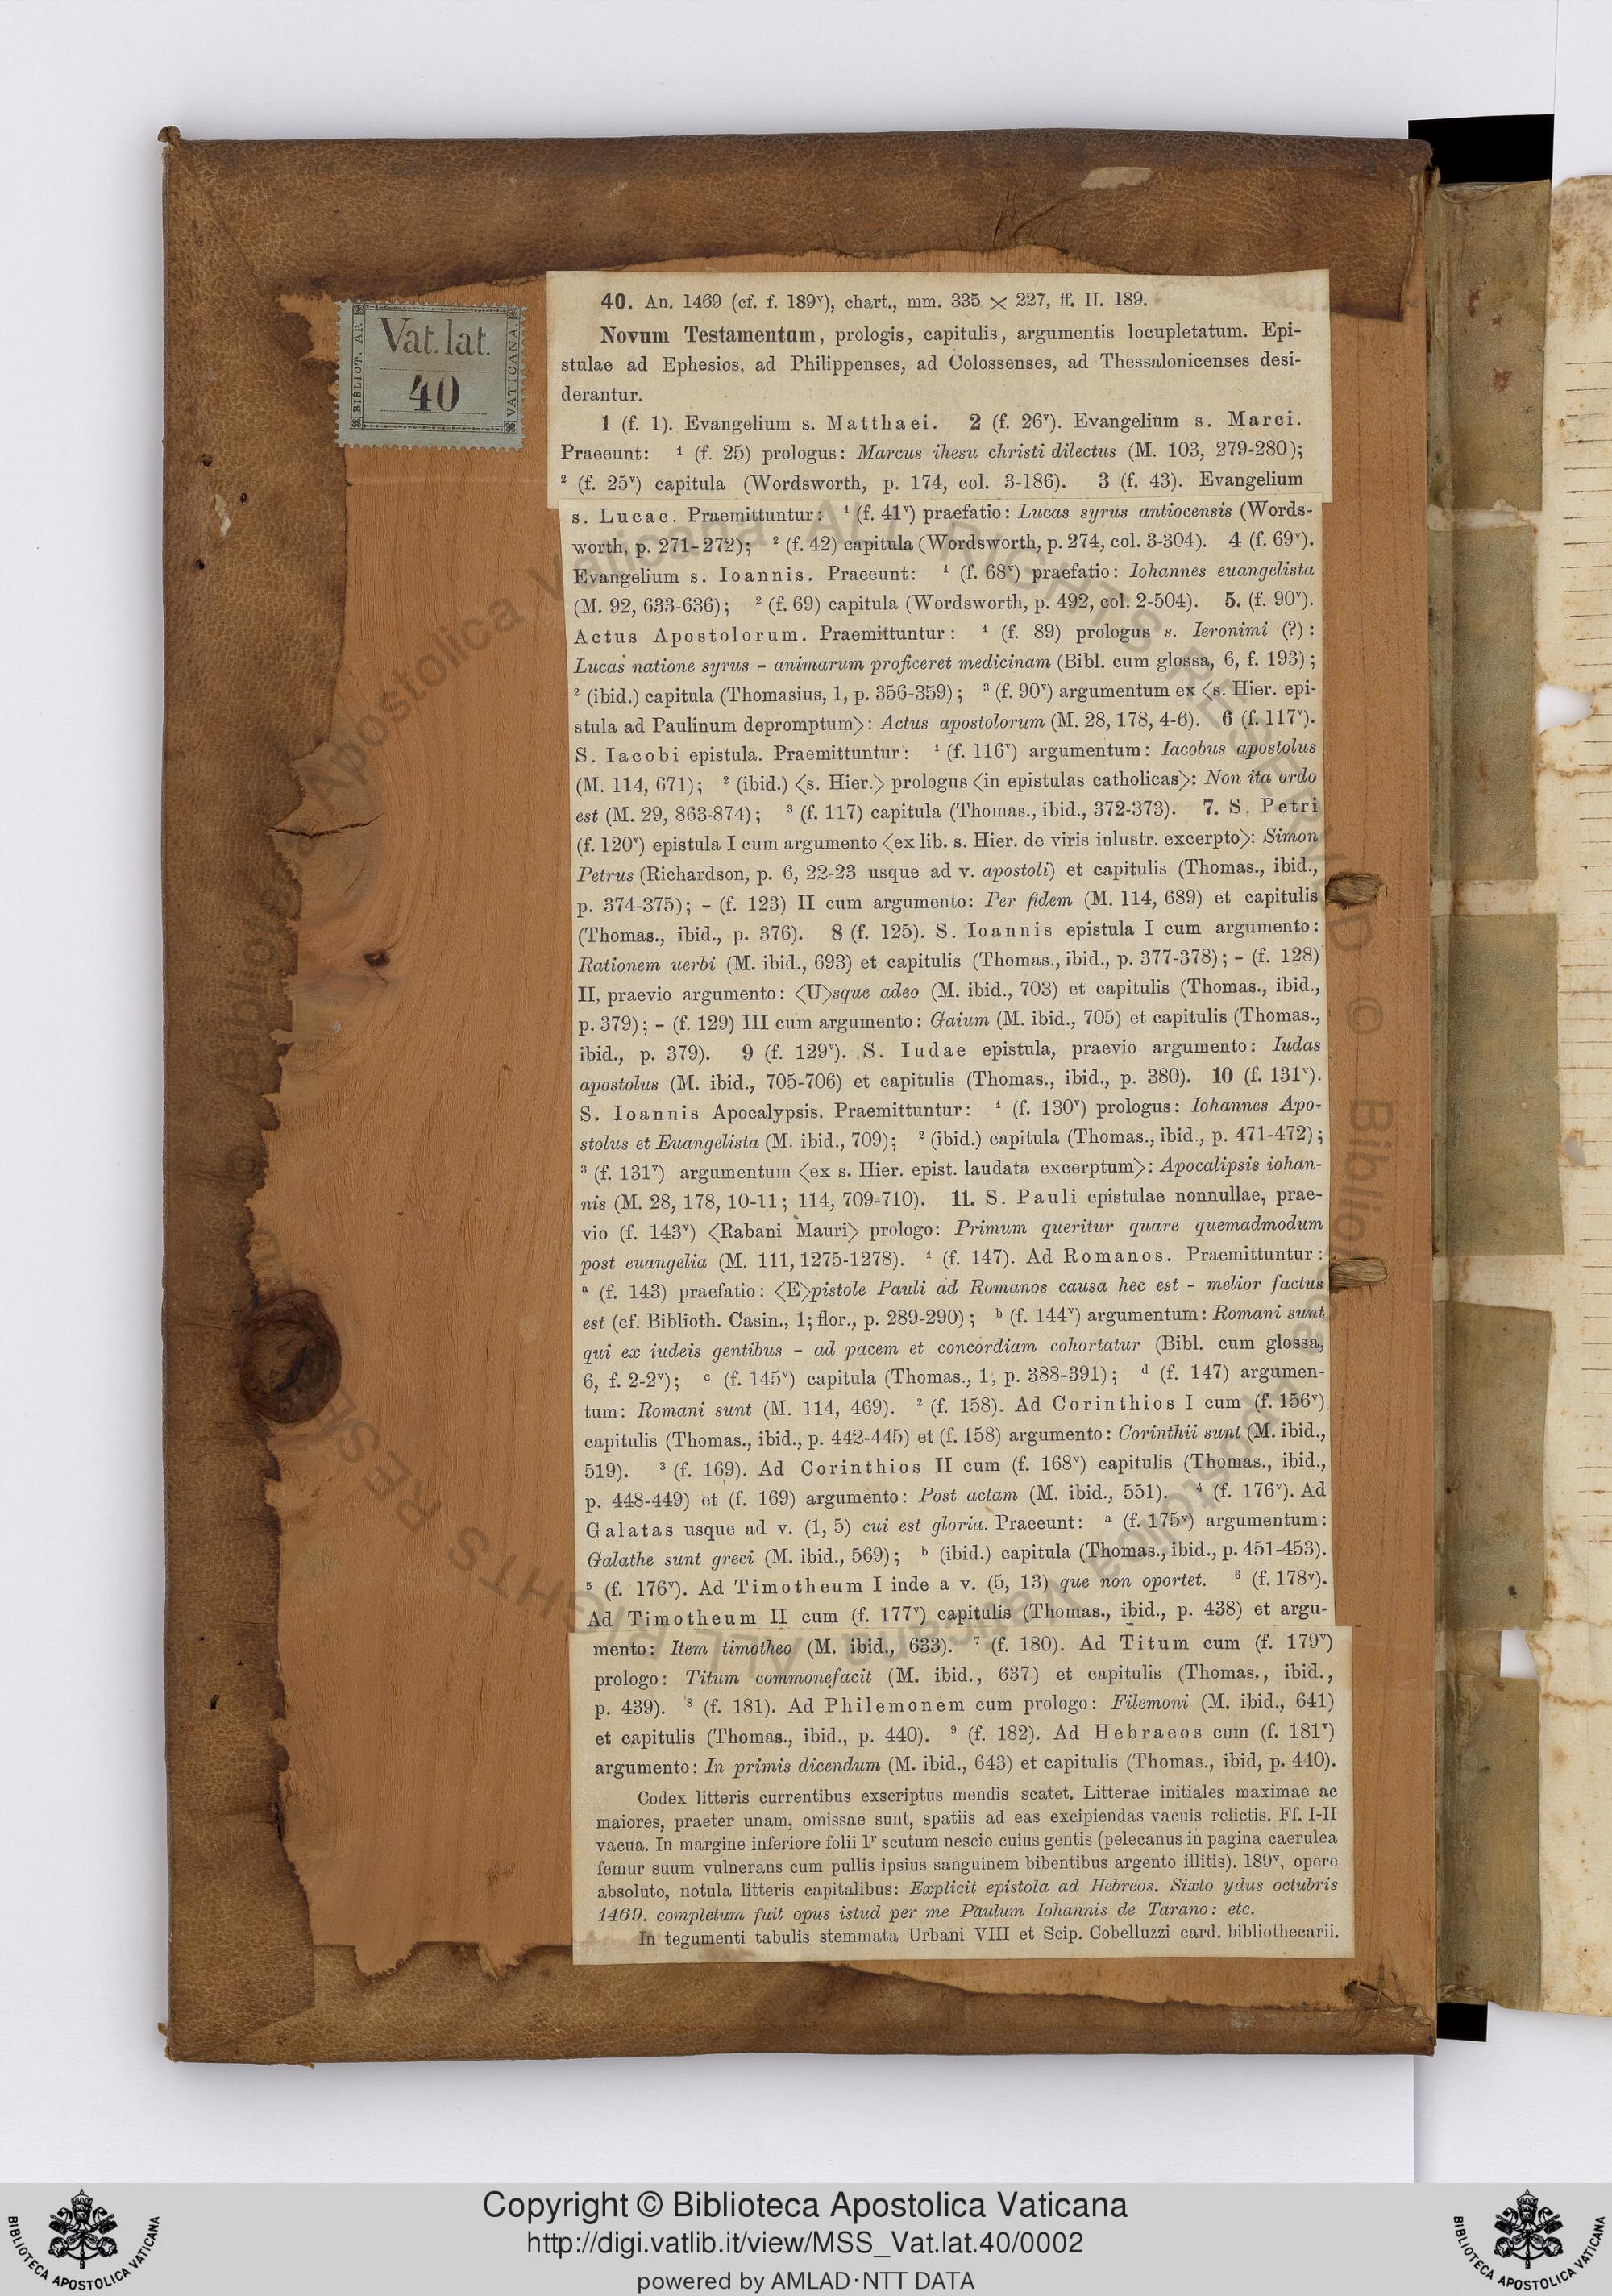 BIBLIOT. AP. VATICANA.
Vat. lat.
40
40. An. 1469 (cf. f. 189ᵛ), chart., mm. 335 × 227, ff. II. 189.
Novum Testamentum, prologis, capitulis, argumentis locupletatum. Epi-
stulae ad Ephesios, ad Philippenses, ad Colossenses, ad Thessalonicenses desi-
derantur.
1 (f. 1). Evangelium s. Matthaei. 2 (f. 26ᵛ). Evangelium s. Marci.
Praeeunt: ¹ (f. 25) prologus: Marcus ihesu christi dilectus (M. 103, 279-280);
² (f. 25ᵛ) capitula (Wordsworth, p. 174, col. 3-186). 3 (f. 43). Evangelium
s. Lucae. Praemittuntur: ¹ (f. 41ᵛ) praefatio: Lucas syrus antiocensis (Words-
worth, p. 271-272); ² (f. 42) capitula (Wordsworth, p. 274, col. 3-304). 4 (f. 69ᵛ).
Evangelium s. Ioannis. Praeeunt: ¹ (f. 68ᵛ) praefatio: Iohannes euangelista
(M. 92, 633-636); ² (f. 69) capitula (Wordsworth, p. 492, col. 2-504). 5. (f. 90ᵛ).
Actus Apostolorum. Praemittuntur: ¹ (f. 89) prologus s. Ieronimi (?):
Lucas natione syrus – animarum proficeret medicinam (Bibl. cum glossa, 6, f. 193);
² (ibid.) capitula (Thomasius, 1, p. 356-359); ³ (f. 90ᵛ) argumentum ex ⟨s. Hier. epi-
stula ad Paulinum depromptum⟩: Actus apostolorum (M. 28, 178, 4-6). 6 (f. 117ᵛ).
S. Iacobi epistula. Praemittuntur: ¹ (f. 116ᵛ) argumentum: Iacobus apostolus
(M. 114, 671); ² (ibid.) ⟨s. Hier.⟩ prologus ⟨in epistulas catholicas⟩: Non ita ordo
est (M. 29, 863-874); ³ (f. 117) capitula (Thomas., ibid., 372-373). 7. S. Petri
(f. 120ᵛ) epistula I cum argumento ⟨ex lib. s. Hier. de viris inlustr. excerpto⟩: Simon
Petrus (Richardson, p. 6, 22-23 usque ad v. apostoli) et capitulis (Thomas., ibid.,
p. 374-375); – (f. 123) II cum argumento: Per fidem (M. 114, 689) et capitulis
(Thomas., ibid., p. 376). 8 (f. 125). S. Ioannis epistula I cum argumento:
Rationem uerbi (M. ibid., 693) et capitulis (Thomas., ibid., p. 377-378); – (f. 128)
II, praevio argumento: ⟨U⟩sque adeo (M. ibid., 703) et capitulis (Thomas., ibid.,
p. 379); – (f. 129) III cum argumento: Gaium (M. ibid., 705) et capitulis (Thomas.,
ibid., p. 379). 9 (f. 129ᵛ). S. Iudae epistula, praevio argumento: Iudas
apostolus (M. ibid., 705-706) et capitulis (Thomas., ibid., p. 380). 10 (f. 131ᵛ).
S. Ioannis Apocalypsis. Praemittuntur: ¹ (f. 130ᵛ) prologus: Iohannes Apo-
stolus et Euangelista (M. ibid., 709); ² (ibid.) capitula (Thomas., ibid., p. 471-472);
³ (f. 131ᵛ) argumentum ⟨ex s. Hier. epist. laudata excerptum⟩: Apocalipsis iohan-
nis (M. 28, 178, 10-11; 114, 709-710). 11. S. Pauli epistulae nonnullae, prae-
vio (f. 143ᵛ) ⟨Rabani Mauri⟩ prologo: Primum queritur quare quemadmodum
post euangelia (M. 111, 1275-1278). ¹ (f. 147). Ad Romanos. Praemittuntur:
ᵃ (f. 143) praefatio: ⟨E⟩pistole Pauli ad Romanos causa hec est – melior factus
est (cf. Biblioth. Casin., 1; flor., p. 289-290); ᵇ (f. 144ᵛ) argumentum: Romani sunt
qui ex iudeis gentibus – ad pacem et concordiam cohortatur (Bibl. cum glossa,
6, f. 2-2ᵛ); ᶜ (f. 145ᵛ) capitula (Thomas., 1, p. 388-391); ᵈ (f. 147) argumen-
tum: Romani sunt (M. 114, 469). ² (f. 158). Ad Corinthios I cum (f. 156ᵛ)
capitulis (Thomas., ibid., p. 442-445) et (f. 158) argumento: Corinthii sunt (M. ibid.,
519). ³ (f. 169). Ad Corinthios II cum (f. 168ᵛ) capitulis (Thomas., ibid.,
p. 448-449) et (f. 169) argumento: Post actam (M. ibid., 551). ⁴ (f. 176ᵛ). Ad
Galatas usque ad v. (1, 5) cui est gloria. Praeeunt: ᵃ (f. 175ᵛ) argumentum:
Galathe sunt greci (M. ibid., 569); ᵇ (ibid.) capitula (Thomas., ibid., p. 451-453).
⁵ (f. 176ᵛ). Ad Timotheum I inde a v. (5, 13) que non oportet. ⁶ (f. 178ᵛ).
Ad Timotheum II cum (f. 177ᵛ) capitulis (Thomas., ibid., p. 438) et argu-
mento: Item timotheo (M. ibid., 633). ⁷ (f. 180). Ad Titum cum (f. 179ᵛ)
prologo: Titum commonefacit (M. ibid., 637) et capitulis (Thomas., ibid.,
p. 439). ⁸ (f. 181). Ad Philemonem cum prologo: Filemoni (M. ibid., 641)
et capitulis (Thomas., ibid., p. 440). ⁹ (f. 182). Ad Hebraeos cum (f. 181ᵛ)
argumento: In primis dicendum (M. ibid., 643) et capitulis (Thomas., ibid, p. 440).
Codex litteris currentibus exscriptus mendis scatet. Litterae initiales maximae ac
maiores, praeter unam, omissae sunt, spatiis ad eas excipiendas vacuis relictis. Ff. I-II
vacua. In margine inferiore folii 1ʳ scutum nescio cuius gentis (pelecanus in pagina caerulea
femur suum vulnerans cum pullis ipsius sanguinem bibentibus argento illitis). 189ᵛ, opere
absoluto, notula litteris capitalibus: Explicit epistola ad Hebreos. Sixto ydus octubris
1469. completum fuit opus istud per me Paulum Iohannis de Tarano: etc.
In tegumenti tabulis stemmata Urbani VIII et Scip. Cobelluzzi card. bibliothecarii.
Copyright © Biblioteca Apostolica Vaticana
http://digi.vatlib.it/view/MSS_Vat.lat.40/0002
powered by AMLAD·NTT DATA
BIBLIOTECA APOSTOLICA VATICANA
BIBLIOTECA APOSTOLICA VATICANA